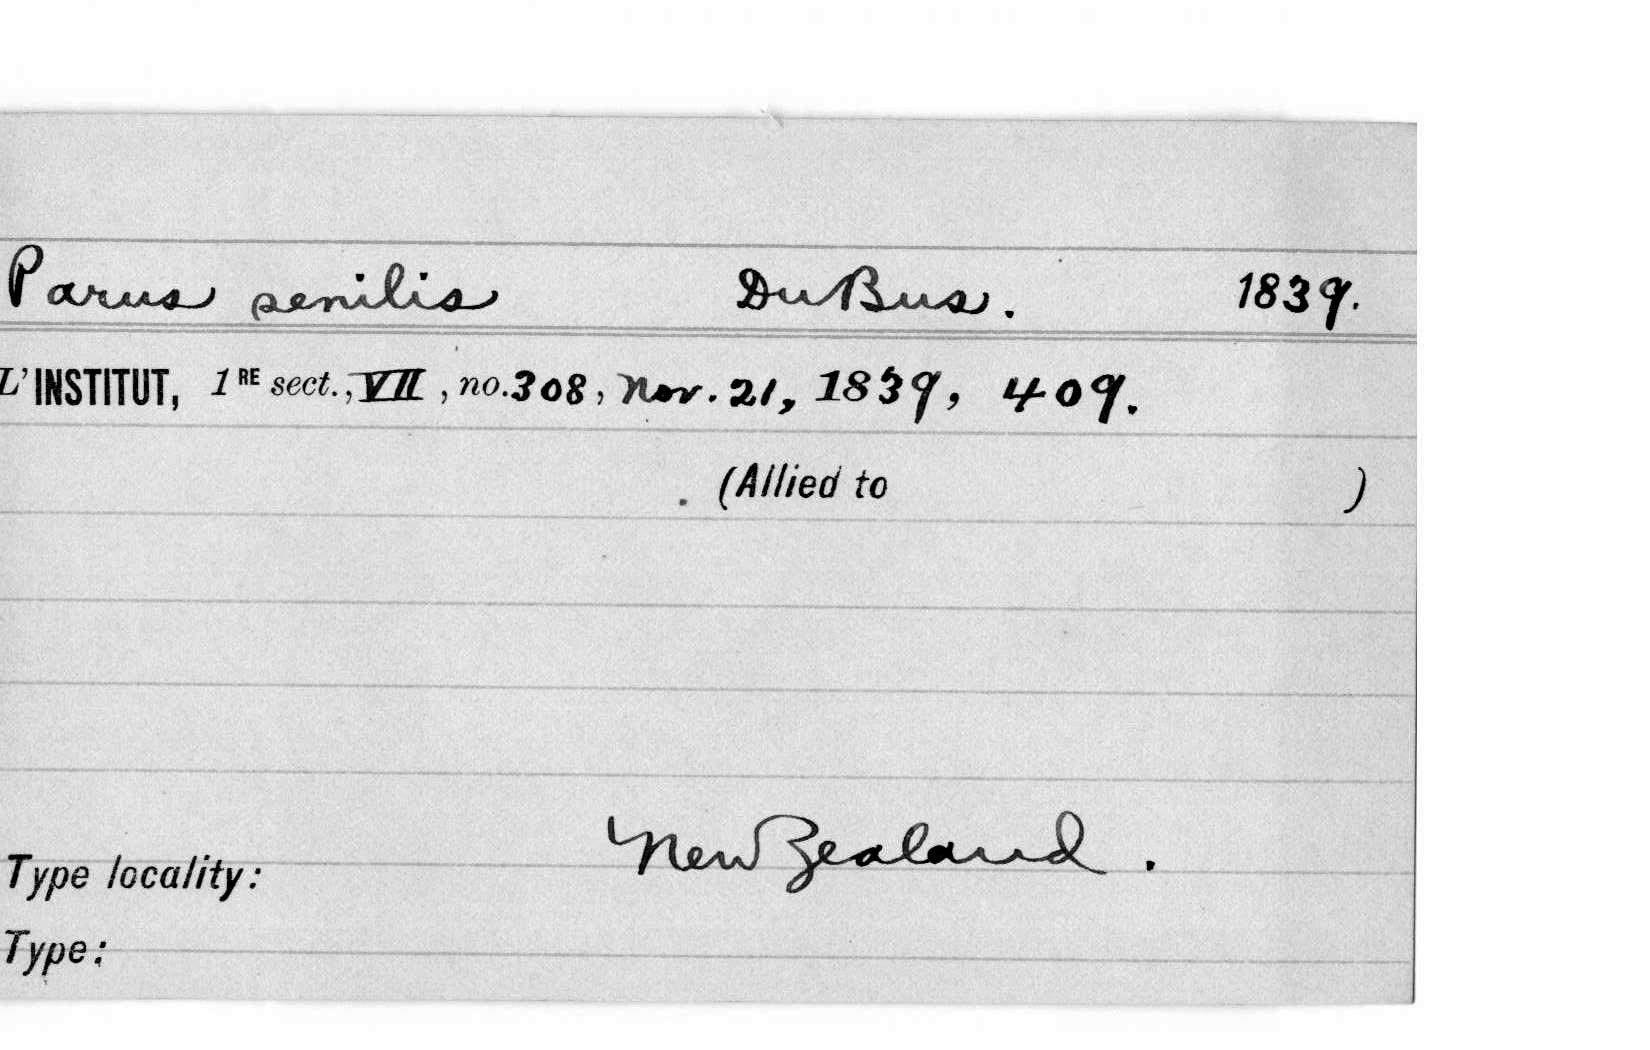 Parus senilis DuBus. 1839.
L'INSTITUT, 1RE sect., VII, no. 308, Nov. 21, 1839, 409.
. (Allied to )
Type locality: New Zealand.
Type: